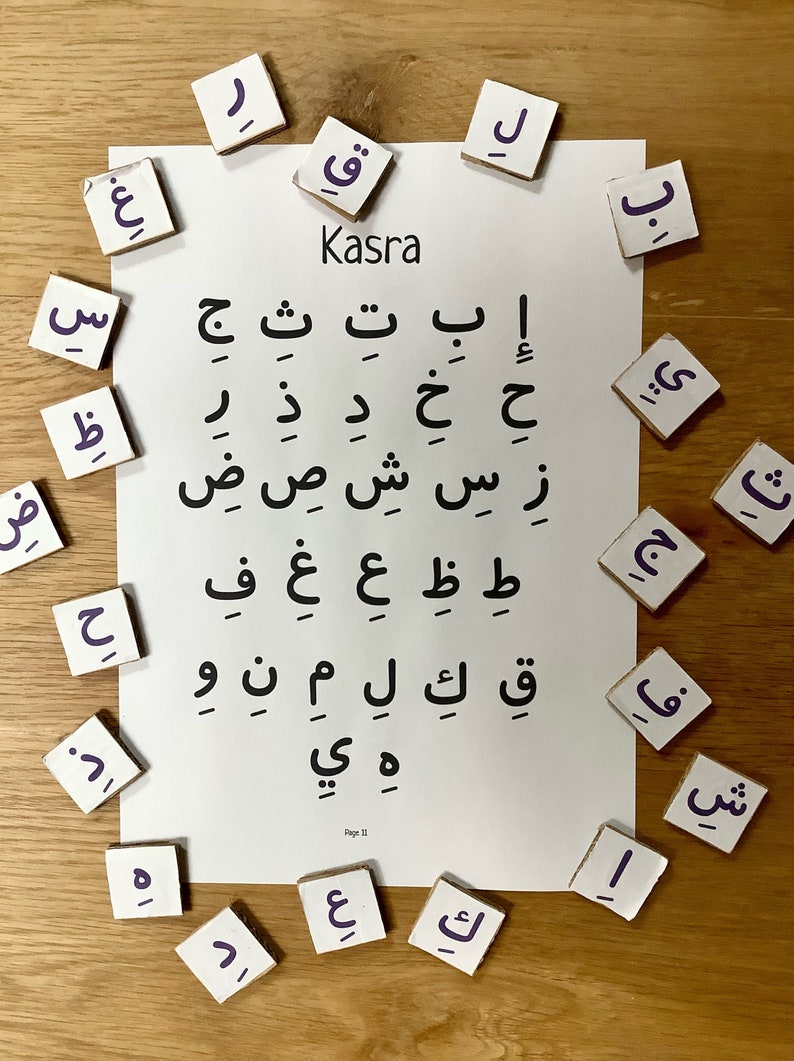 Kasra
إِ بِ تِ ثِ جِ
حِ خِ دِ ذِ رِ
زِ سِ شِ صِ ضِ
طِ ظِ عِ غِ فِ
قِ كِ لِ مِ نِ وِ
هِ يِ
Page 11
رِ
لِ
قِ
بِ
غِ
سِ
يِ
ظِ
ثِ
ضِ
جِ
حِ
فِ
ذِ
شِ
اِ
هِ
عِ
كِ
دِ